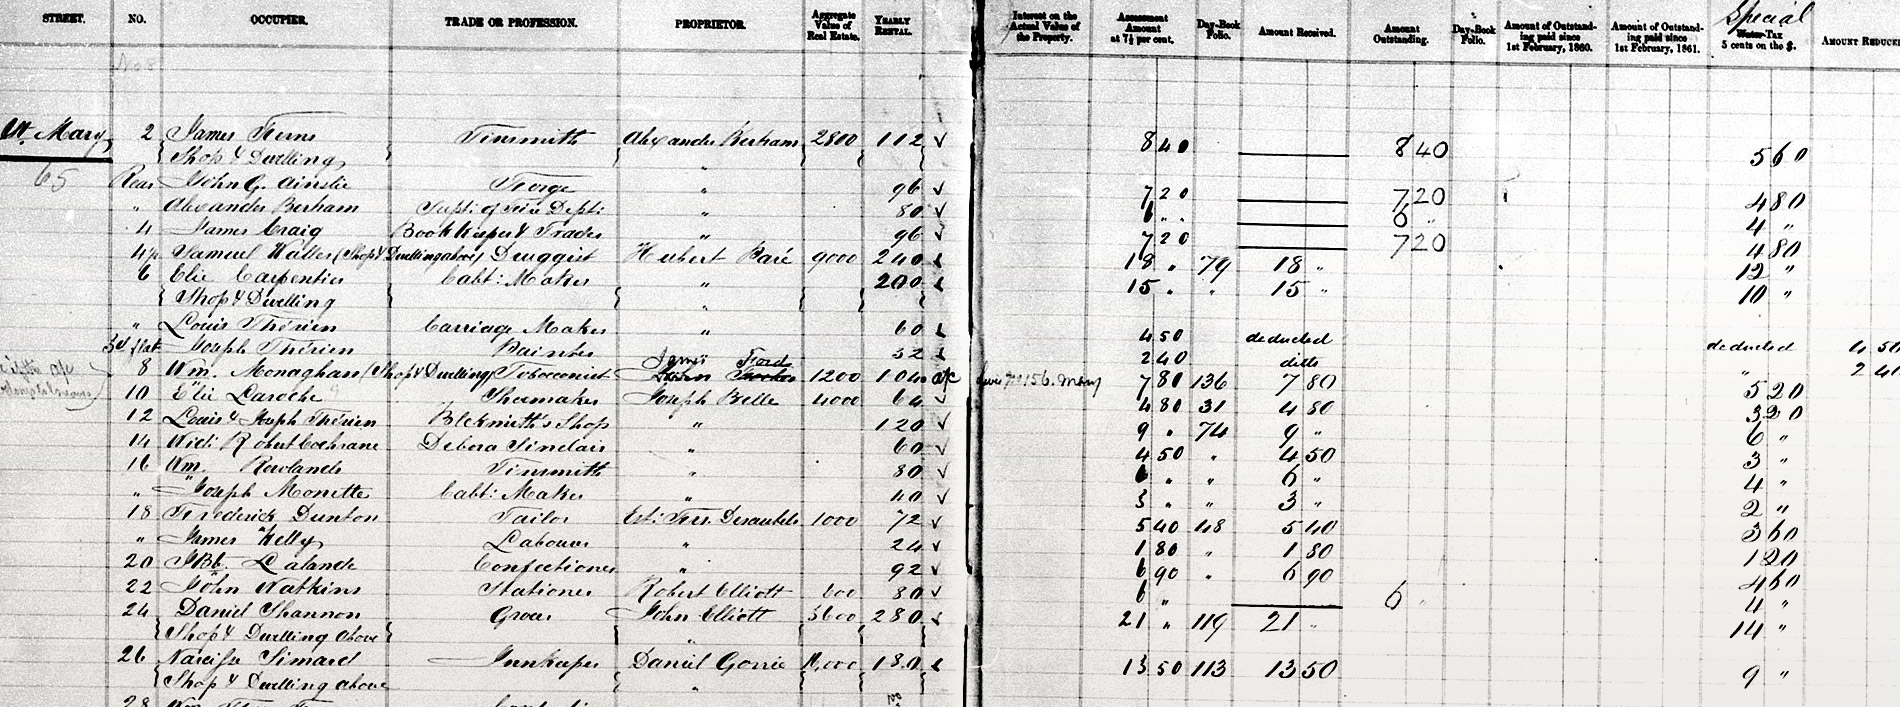 STREET. NO. OCCUPIER. TRADE OR PROFESSION. PROPRIETOR. Aggregate Value of Real Estate. YEARLY RENTAL. Interest on the Actual Value of the Property. Assessment Amount at 7½ per cent. Day-Book Folio. Amount Received. Amount Outstanding. Day-Book Folio. Amount of Outstanding paid since 1st February, 1860. Amount of Outstanding paid since 1st February, 1861. Special Water-Tax 5 cents on the $. AMOUNT REDUCED
St. Mary 2 James Ferns Tinsmith Alexander Bertram 2800 112 ✓ 8 40 8 40 5 60
Shop & Dwelling
65
Rear John G. Ainslie Forge " 96 ✓ 7 20 7 20 4 80
" Alexander Bertram Supt: of Fire Dept: " 80 ✓ 6 " 6 " 4 "
4 James Craig Book Keeper & Trader " 96 ✓ 7 20 7 20 4 80
4½ Samuel Walter (Shop & Dwelling above) Druggist Hubert Paré 9000 240 18 " 79 18 " 12 "
6 Elie Carpentier Cabt: Maker " 200 15 " " 15 " 10 "
Shop & Dwelling "
" Louis Thérien Carriage Maker " 60 4 50 deducted deducted 4 50
3d flat Joseph Thérien Painter " 32 ✓ 2 40 ditto " 2 40
8 Wm. Monaghan (Shop & Dwelling) Tobacconist James Ford 1200 104 a/c 156. Mary 7 80 136 7 80 5 20
10 Elie Laroche Shoemaker Joseph Belle 4000 64 ✓ 4 80 31 4 80 3 20
12 Louis & Joseph Thérien Blcksmith's Shop " 120 ✓ 9 " 74 9 " 6 "
14 Wid: Robert Cochrane Debora Sinclair " 60 ✓ 4 50 " 4 50 3 "
16 Wm. Rowlands Tinsmith " 80 ✓ 6 " " 6 " 4 "
" Joseph Monette Cabt: Maker " 40 ✓ 3 " " 3 " 2 "
18 Frederick Dunton Tailor Est: Frs. Desautels 1000 72 ✓ 5 40 48 5 40 3 60
" James Kelly Labourer " 24 ✓ 1 80 " 1 80 1 20
20 J. Bt. Lalande Confectioner " 92 ✓ 6 90 " 6 90 4 60
22 John Watkins Stationer Robert Elliott 600 80 ✓ 6 " 6 " 4 "
24 Daniel Shannon Grocer John Elliott 3600 280 ✓ 21 " 119 21 " 14 "
Shop & Dwelling above "
26 Narcisse Simard Innkeeper Daniel Gorrie 180 13 50 113 13 50 9 "
Shop & Dwelling above "
28 Wm.